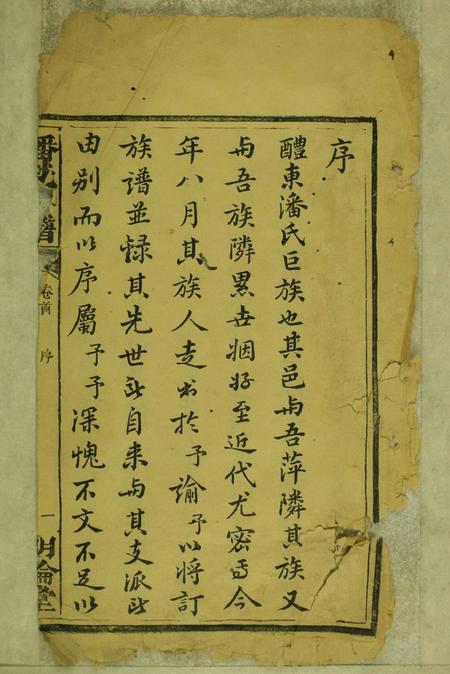 序
醴東潘氏巨族也其邑与吾萍隣其族又
与吾族隣累世姻好至近代尤密焉今
年八月其族人走書於予諭予以將訂
族譜並錄其先世所自来与其支派所
由别而以序屬予予深愧不文不足以
潘氏 譜
卷首
序
一
明倫堂